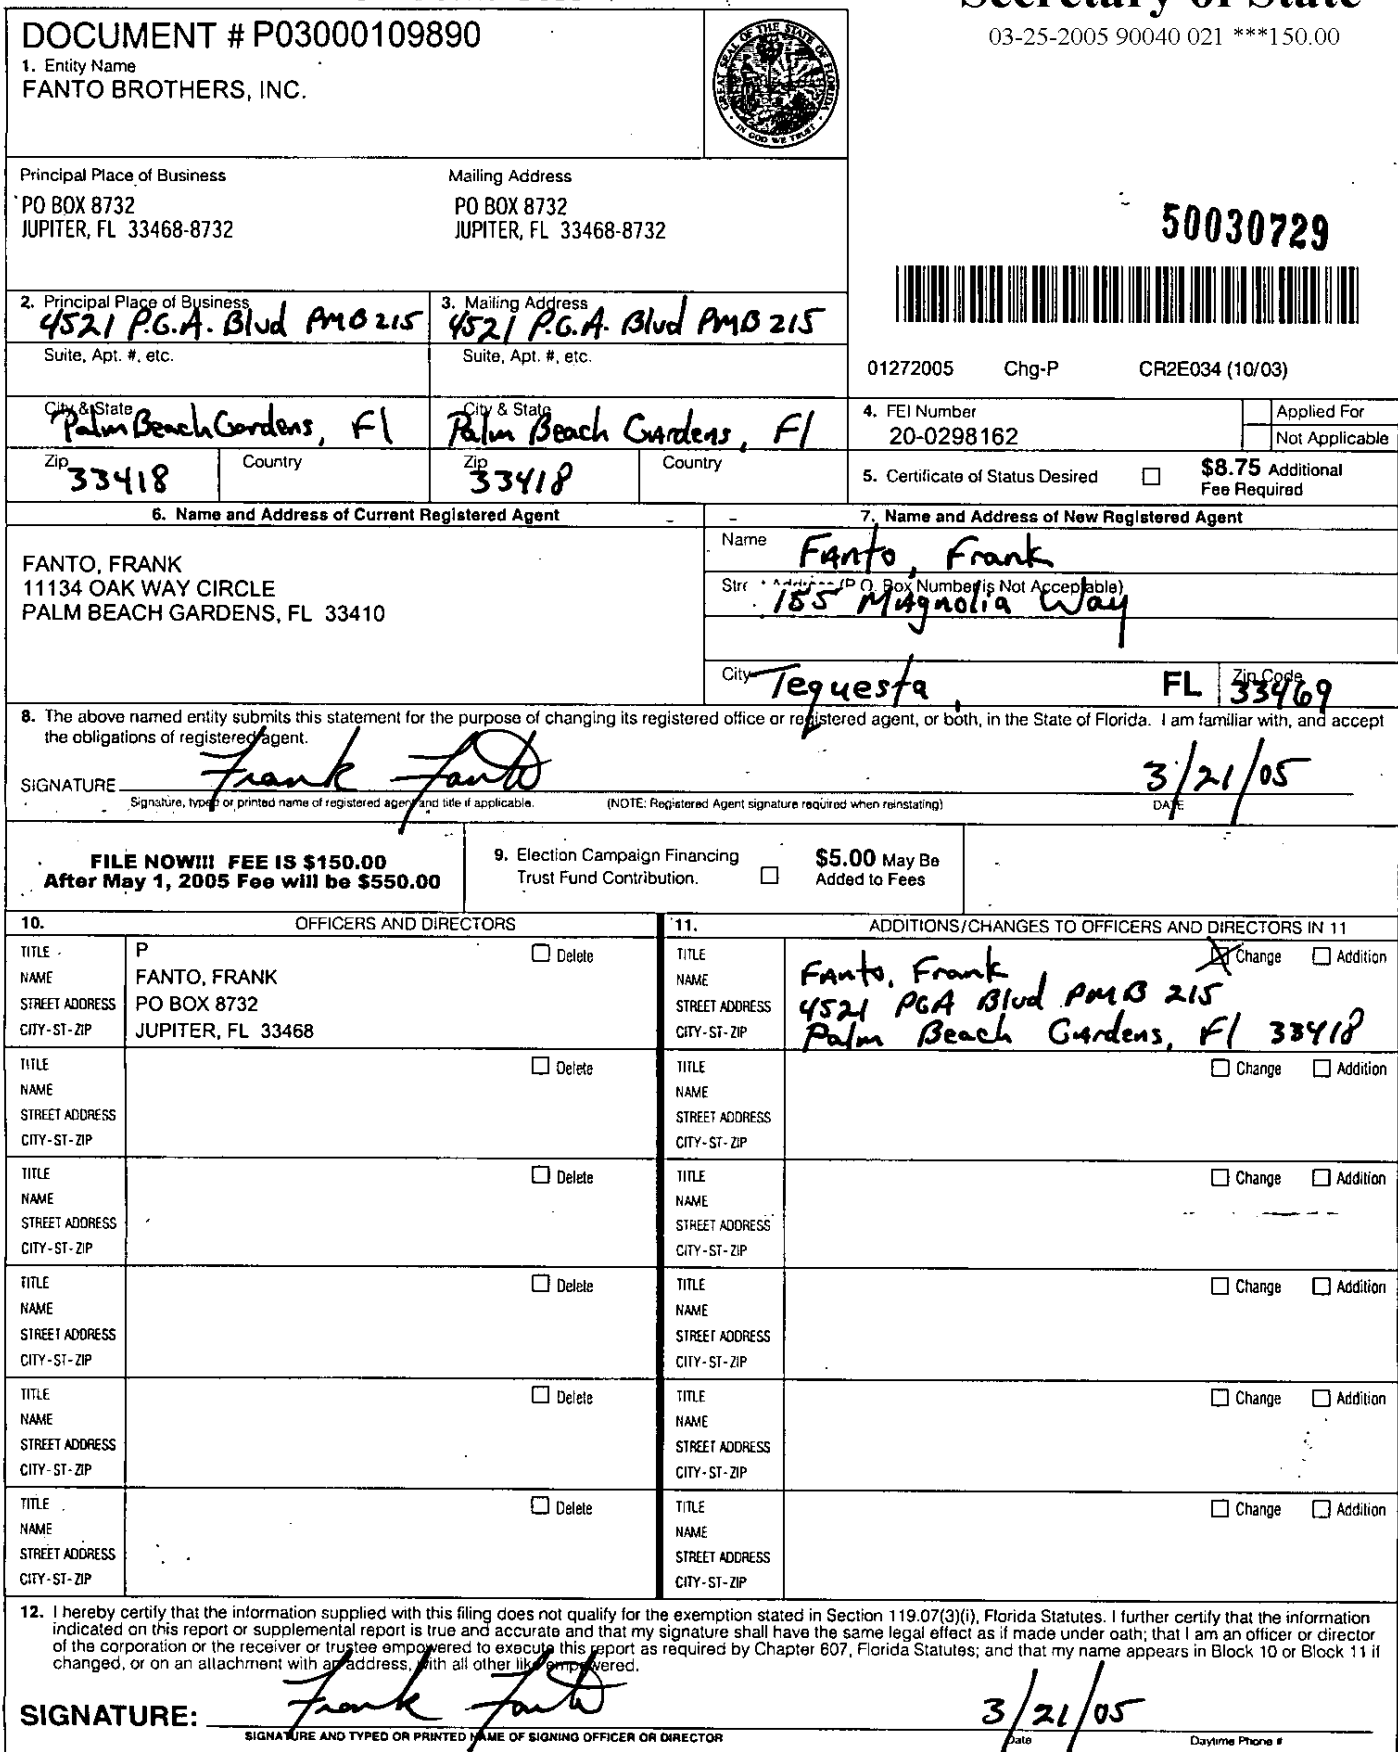 Secretary of State
03-25-2005 90040 021 ***150.00
DOCUMENT # P03000109890
1. Entity Name
FANTO BROTHERS, INC.
GREAT SEAL OF THE STATE OF FLORIDA
IN GOD WE TRUST
Principal Place of Business
PO BOX 8732
JUPITER, FL 33468-8732
Mailing Address
PO BOX 8732
JUPITER, FL 33468-8732
50030729
2. Principal Place of Business
4521 P.G.A. Blvd PMB 215
3. Mailing Address
4521 P.G.A. Blvd PMB 215
Suite, Apt. #, etc.
Suite, Apt. #, etc.
01272005 Chg-P CR2E034 (10/03)
City & State
Palm Beach Gardens, Fl
City & State
Palm Beach GArdens, Fl
Zip
33418
Country
Zip
33418
Country
4. FEI Number
20-0298162
Applied For
Not Applicable
5. Certificate of Status Desired
$8.75 Additional
Fee Required
6. Name and Address of Current Registered Agent
FANTO, FRANK
11134 OAK WAY CIRCLE
PALM BEACH GARDENS, FL 33410
7. Name and Address of New Registered Agent
Name
FAnto, Frank
(P.O. Box Number is Not Acceptable)
MAgnolia Way
City
Tequesta
FL
Zip Code
33469
8. The above named entity submits this statement for the purpose of changing its registered office or registered agent, or both, in the State of Florida. I am familiar with, and accept
the obligations of registered agent.
SIGNATURE
Frank Fanto
3/21/05
Signature, typed or printed name of registered agent and title if applicable.
(NOTE: Registered Agent signature required when reinstating)
DATE
FILE NOW!!! FEE IS $150.00
After May 1, 2005 Fee will be $550.00
9. Election Campaign Financing
Trust Fund Contribution.
$5.00 May Be
Added to Fees
10. OFFICERS AND DIRECTORS
TITLE P Delete
NAME FANTO, FRANK
STREET ADDRESS PO BOX 8732
CITY-ST-ZIP JUPITER, FL 33468
11. ADDITIONS/CHANGES TO OFFICERS AND DIRECTORS IN 11
TITLE Change Addition
NAME FAnto, Frank
STREET ADDRESS 4521 PGA Blvd PMB 215
CITY-ST-ZIP Palm Beach GArdens, Fl 33418
TITLE Delete
NAME
STREET ADDRESS
CITY-ST-ZIP
TITLE Change Addition
NAME
STREET ADDRESS
CITY-ST-ZIP
TITLE Delete
NAME
STREET ADDRESS
CITY-ST-ZIP
TITLE Change Addition
NAME
STREET ADDRESS
CITY-ST-ZIP
TITLE Delete
NAME
STREET ADDRESS
CITY-ST-ZIP
TITLE Change Addition
NAME
STREET ADDRESS
CITY-ST-ZIP
TITLE Delete
NAME
STREET ADDRESS
CITY-ST-ZIP
TITLE Change Addition
NAME
STREET ADDRESS
CITY-ST-ZIP
TITLE Delete
NAME
STREET ADDRESS
CITY-ST-ZIP
TITLE Change Addition
NAME
STREET ADDRESS
CITY-ST-ZIP
12. I hereby certify that the information supplied with this filing does not qualify for the exemption stated in Section 119.07(3)(i), Florida Statutes. I further certify that the information
indicated on this report or supplemental report is true and accurate and that my signature shall have the same legal effect as if made under oath; that I am an officer or director
of the corporation or the receiver or trustee empowered to execute this report as required by Chapter 607, Florida Statutes; and that my name appears in Block 10 or Block 11 if
changed, or on an attachment with an address, with all other like empowered.
SIGNATURE:
Frank Fanto
3/21/05
SIGNATURE AND TYPED OR PRINTED NAME OF SIGNING OFFICER OR DIRECTOR
Date
Daytime Phone #